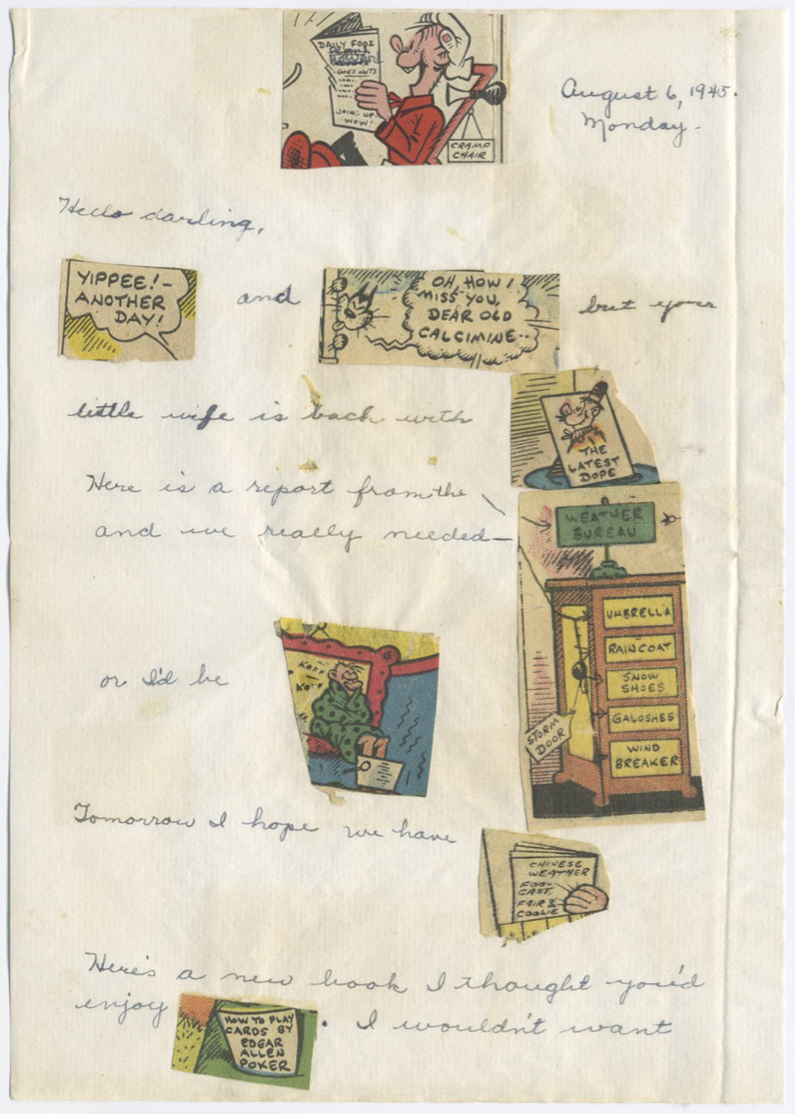 DAILY FOOZ
GOES NUTS
JOINS UP
WOW!
CRAMP
CHAIR
August 6, 1945.
Monday.
Hello darling,
YIPPEE!-
ANOTHER
DAY!
and
OH, HOW I
MISS YOU,
DEAR OLD
CALCIMINE--
but your
little wife is back with
THE
LATEST
DOPE
Here is a report from the
WEATHER
BUREAU
and we really needed—
UMBRELLA
RAINCOAT
SNOW
SHOES
GALOSHES
WIND
BREAKER
STORM
DOOR
or I'd be
KOFF
KOFF
Tomorrow I hope we have
CHINESE
WEATHER
FOO-
CAST,
FAIR &
COOLIE
Here's a new book I thought you'd
enjoy
HOW TO PLAY
CARDS BY
EDGAR
ALLEN
POKER
. I wouldn't want